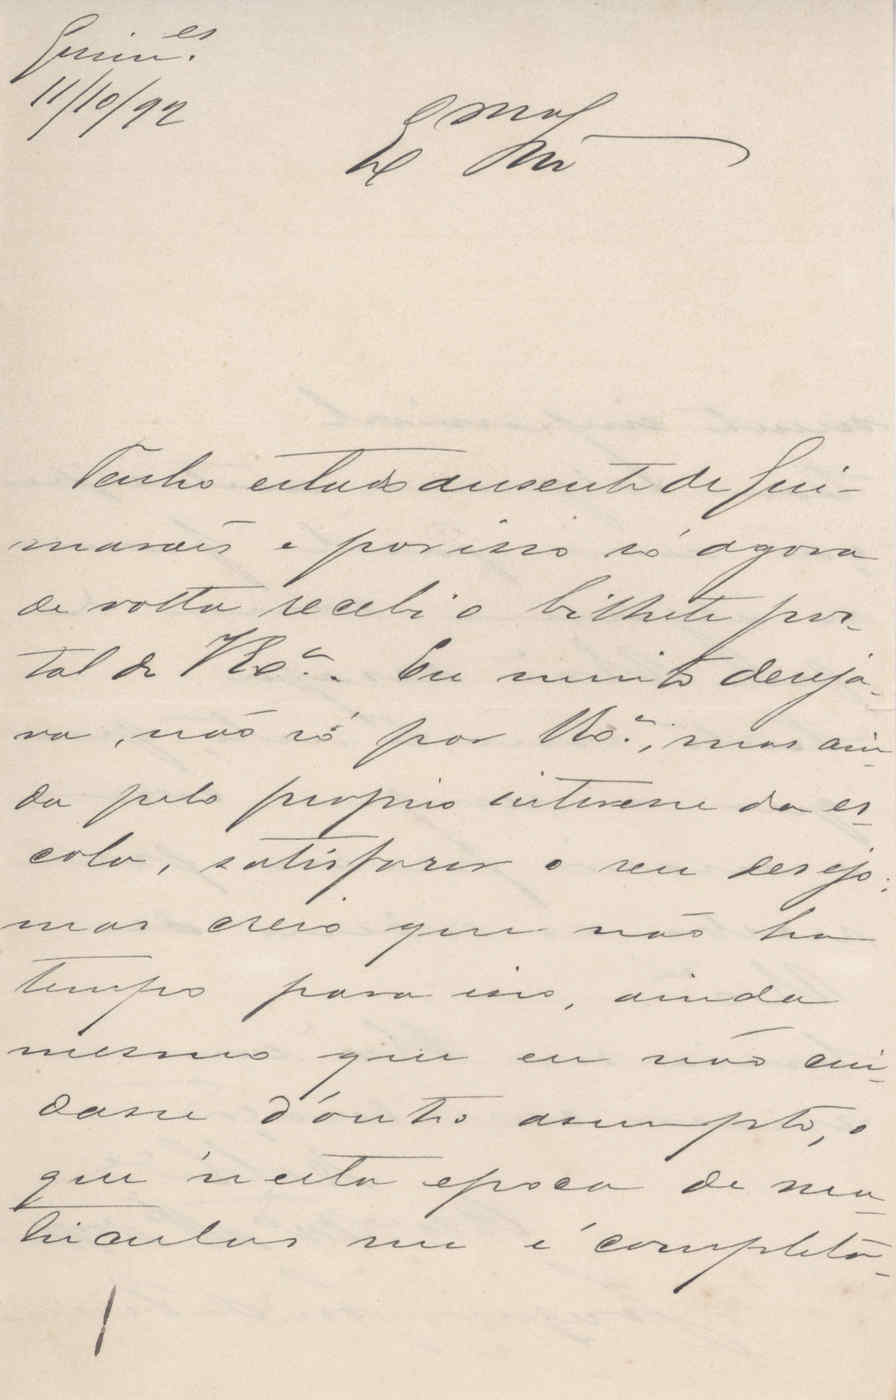 Guim.es
11/10/92
Exmo Snr
Tenho estado ausente de Gui-
marães e por isso só agora
de volta recebi o bilhete pos-
tal de V. Ex.ª. Eu muito deseja-
va, não só por V. Ex.ª, mas ain-
da pelo proprio interesse da es-
cola, satisfazer o seu desejo;
mas creio que não ha
tempo para isso, ainda
mesmo que eu não cui-
dasse d'outro assumpto, o
que n'esta epoca de ma-
triculas me é completa-